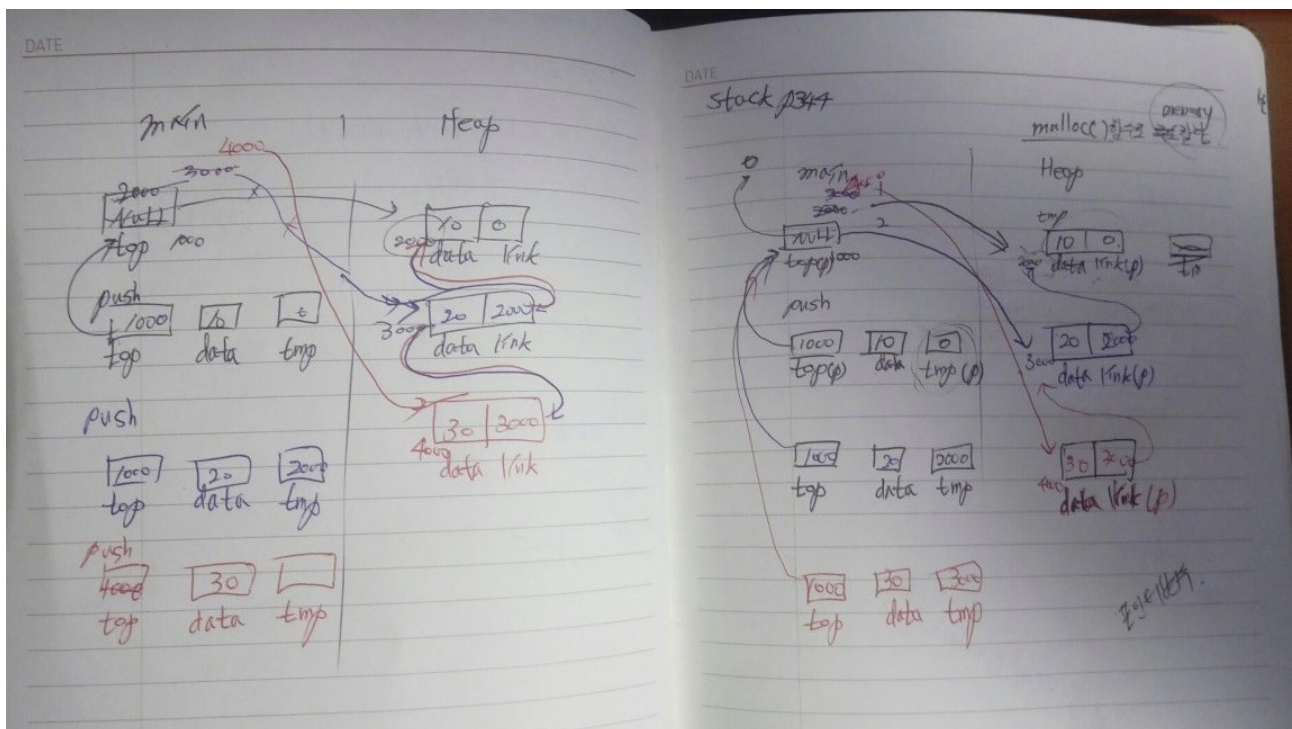 DATE
main
Heap
4000
3000
2000
Null
top 1000
10 0
2000
data link
push
1000 10 0
top data tmp
20 2000
3000
data link
push
30 3000
4000
data link
1000 20 2000
top data tmp
push
4000 30
top data tmp
DATE
stack p344
memory
malloc()함수로
main
Heap
0
3000
2
NULL
top(p) 1000
tmp
10 0
2000
data link(p)
push
1000 10 0
top(p) data tmp(p)
20 2000
3000
data link(p)
1000 20 2000
top data tmp
30 3000
data link(p)
1000 30 3000
top data tmp